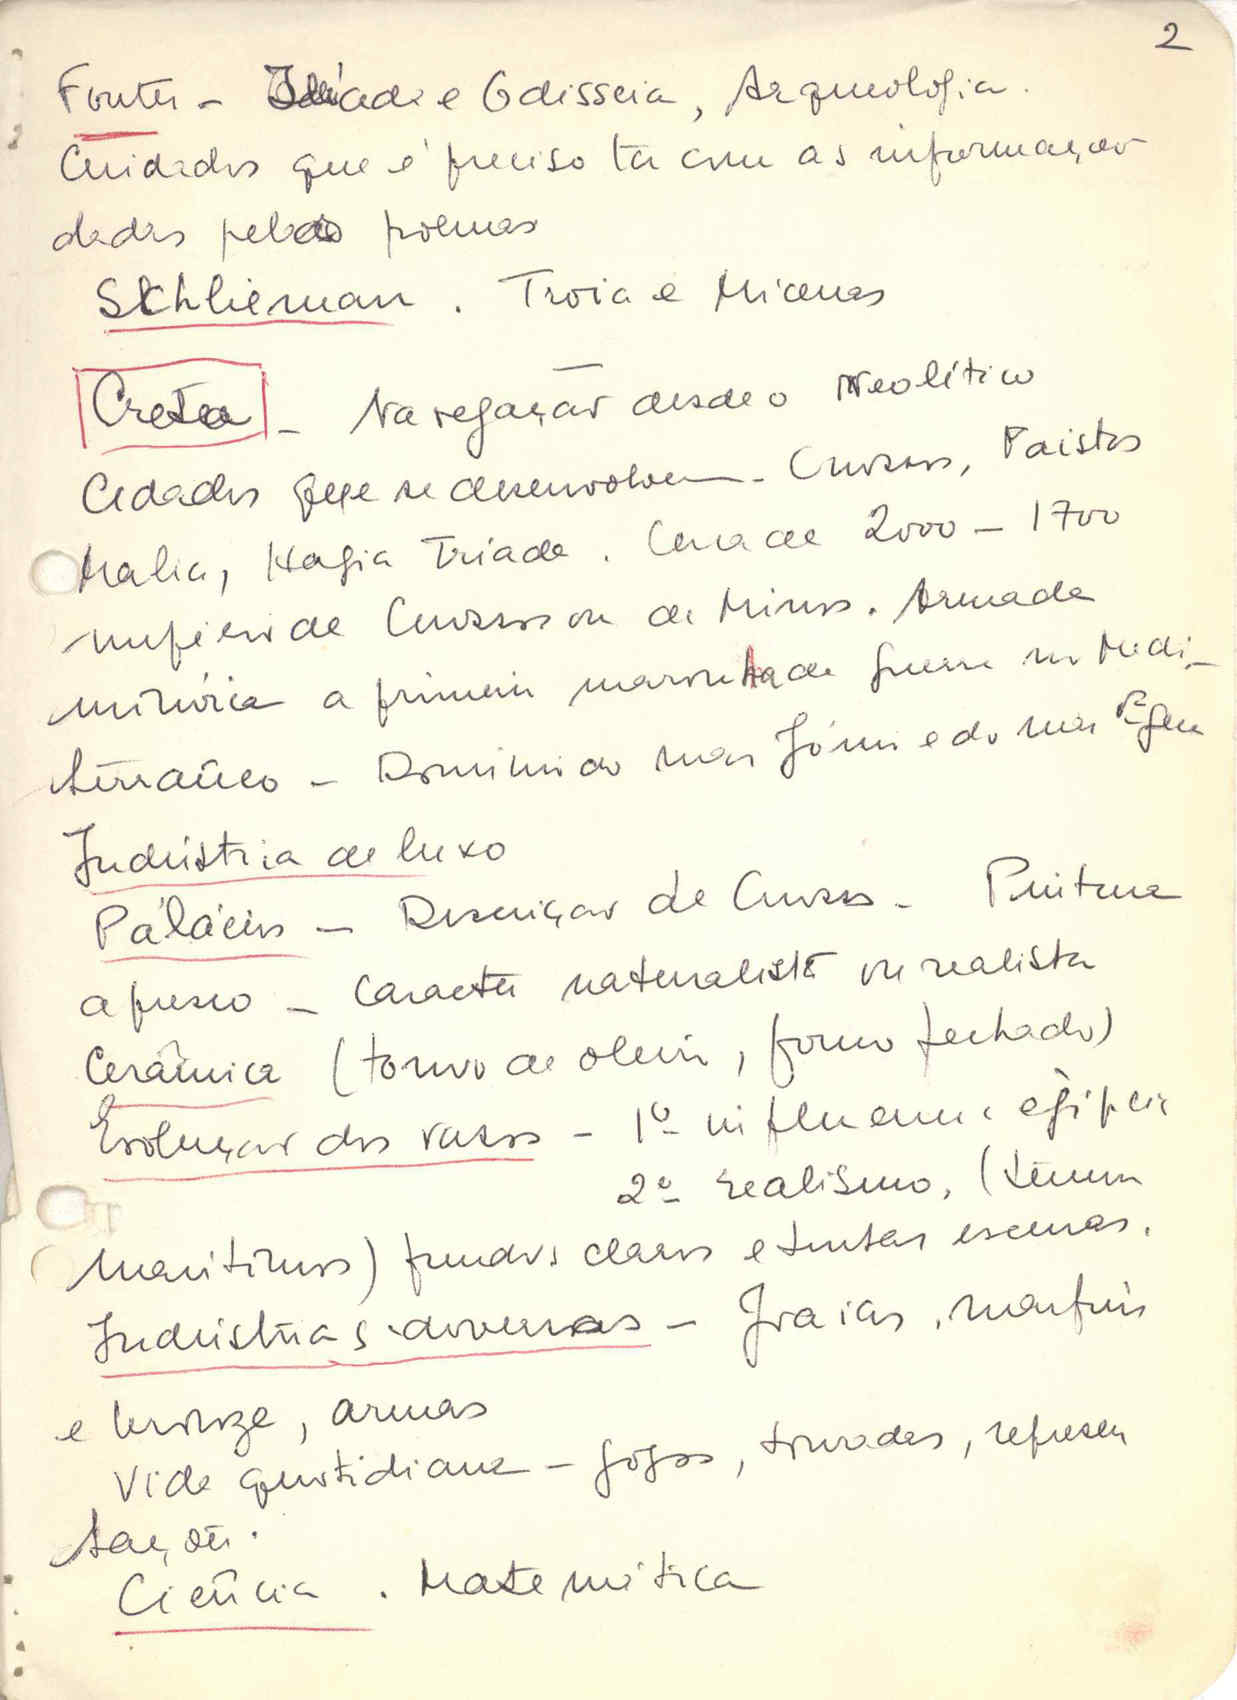 2
Fontes - Ilíade e Odisseia, Arqueologia.
Cuidados que é preciso ter com as informações
dadas pelos poemas
Schlieman. Troia e Micenas
Creta - Navegação desde o Neolítico
Cidades que se desenvolvem - Cnossos, Faistos
Malia, Hagia Triade. Cerca de 2000 - 1700
império de Cnossos ou de Minos. Armada
minóica a primeira marinha de guerra no Medi-
terrâneo - Domínio do mar Jónio e do mar Egeu
Indústria de luxo
Palácios - Descrição de Cnossos - Pintura
a fresco - Caracter naturalista ou realista
Cerâmica (torno de oleiro, forno fechado)
Evolução dos vasos - 1º influencia egípcia
2º realismo, (temas
maritimos) fundos claros e tintas escuras.
Indústrias diversas - Joias, marfins
e bronze, armas
Vida quotidiana - jogos, touradas, represen
tações.
Ciência. Matemática